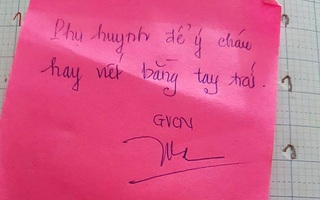 Phụ huynh để ý cháu
hay viết bằng tay trái.
GVCN